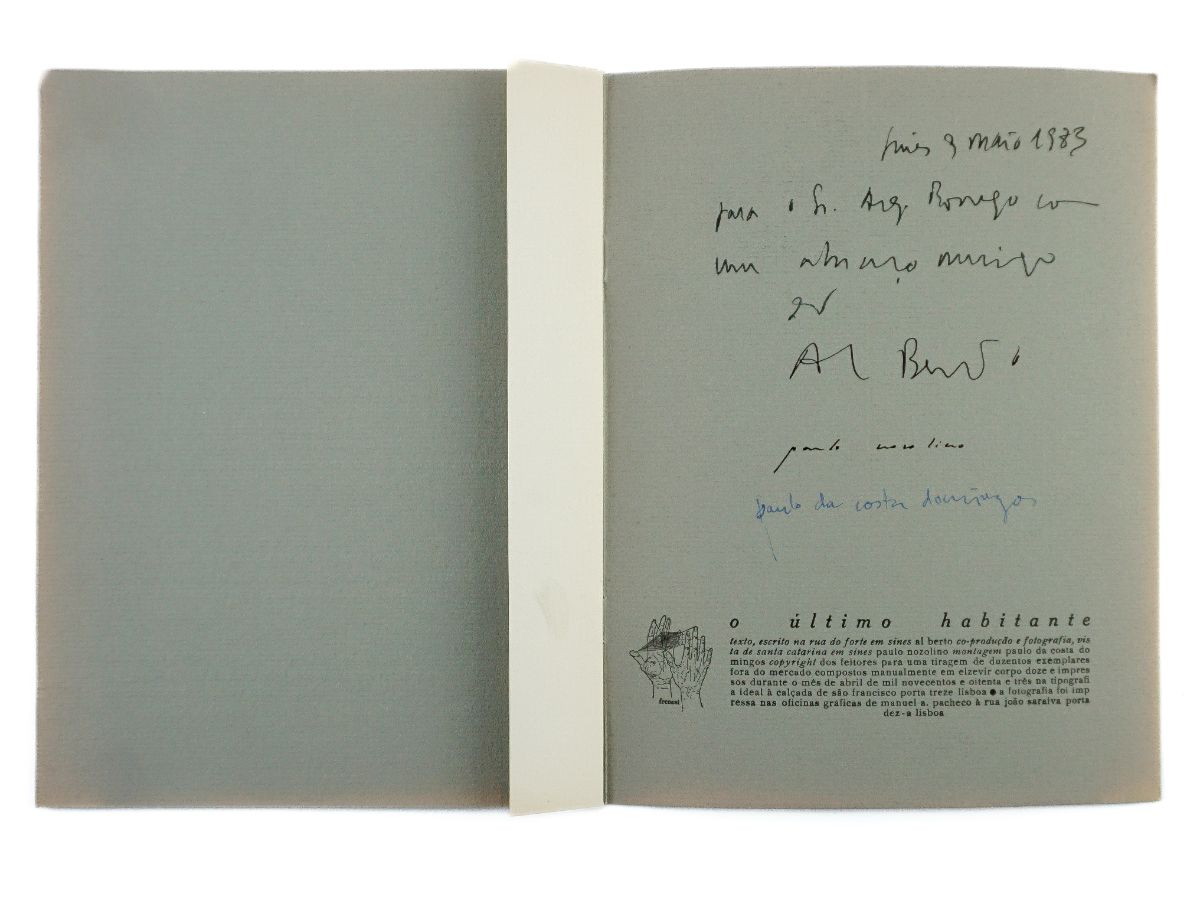 Sines 9 maio 1983
para o Sr. Arq. Borrego com
um abraço amigo
do
Al Berto
paulo nozolino
paulo da costa domingos
o último habitante
texto, escrito na rua do forte em sines al berto co-produção e fotografia, vis
ta de santa catarina em sines paulo nozolino montagem paulo da costa do
mingos copyright dos feitores para uma tiragem de duzentos exemplares
fora do mercado compostos manualmente em elzevir corpo doze e impres
sos durante o mês de abril de mil novecentos e oitenta e três na tipografi
a ideal à calçada de são francisco porta treze lisboa ● a fotografia foi imp
ressa nas oficinas gráficas de manuel a. pacheco à rua joão saraiva porta
dez-a lisboa
frenesi